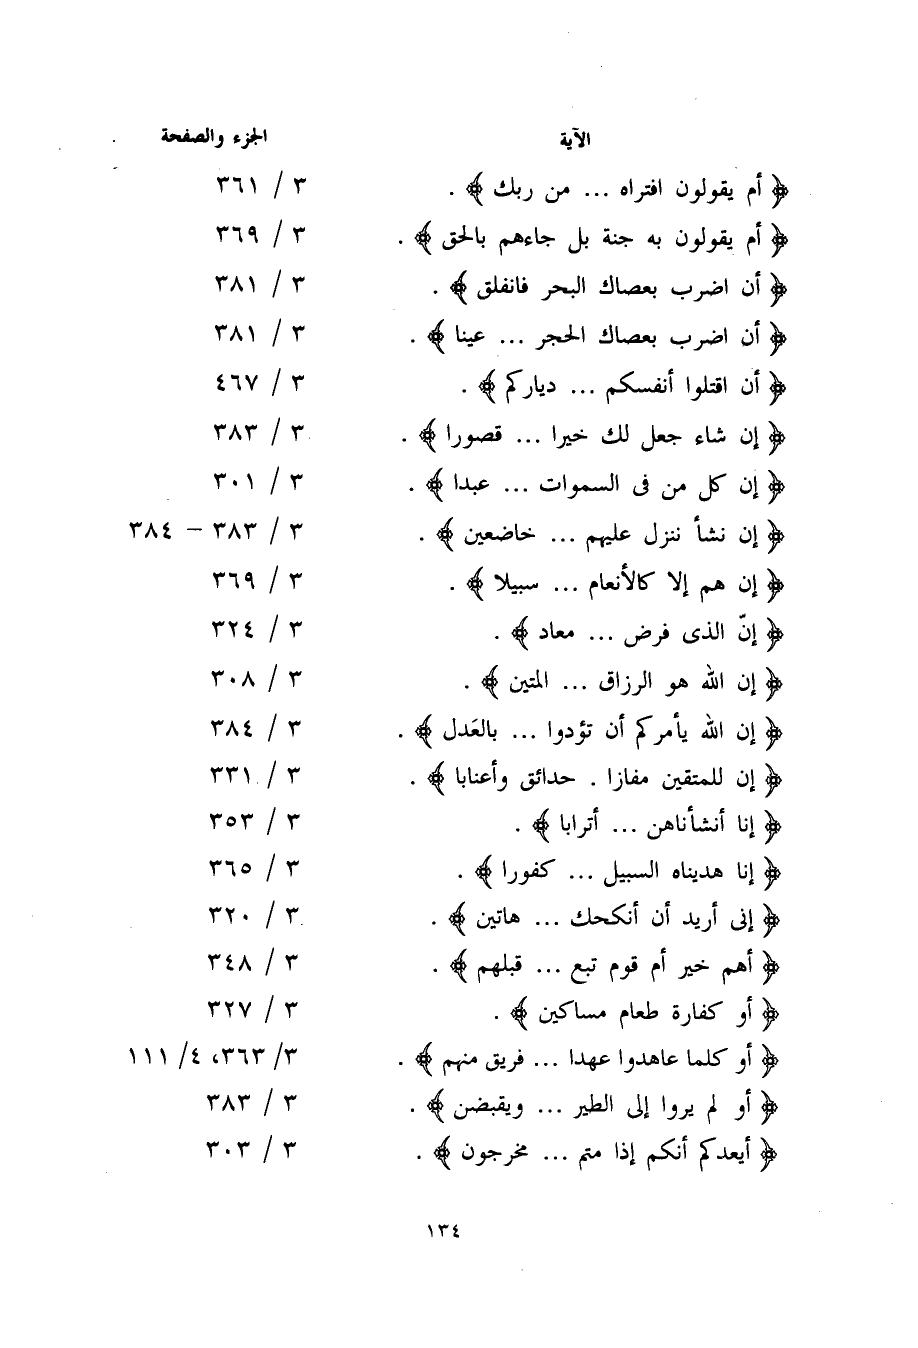 الآية الجزء والصفحة
﴿ أم يقولون افتراه ... من ربك ﴾ . ٣ / ٣٦١
﴿ أم يقولون به جنة بل جاءهم بالحق ﴾ . ٣ / ٣٦٩
﴿ أن اضرب بعصاك البحر فانفلق ﴾ . ٣ / ٣٨١
﴿ أن اضرب بعصاك الحجر ... عينا ﴾ . ٣ / ٣٨١
﴿ أن اقتلوا أنفسكم ... دياركم ﴾ . ٣ / ٤٦٧
﴿ إن شاء جعل لك خيرا ... قصورا ﴾ . ٣ / ٣٨٣
﴿ إن كل من فى السموات ... عبدا ﴾ . ٣ / ٣٠١
﴿ إن نشأ ننزل عليهم ... خاضعين ﴾ . ٣ / ٣٨٣ – ٣٨٤
﴿ إن هم إلا كالأنعام ... سبيلا ﴾ . ٣ / ٣٦٩
﴿ إنّ الذى فرض ... معاد ﴾ . ٣ / ٣٢٤
﴿ إن الله هو الرزاق ... المتين ﴾ . ٣ / ٣٠٨
﴿ إن الله يأمركم أن تؤدوا ... بالعَدل ﴾ . ٣ / ٣٨٤
﴿ إن للمتقين مفازا . حدائق وأعنابا ﴾ . ٣ / ٣٣١
﴿ إنا أنشأناهن ... أترابا ﴾ . ٣ / ٣٥٣
﴿ إنا هديناه السبيل ... كفورا ﴾ . ٣ / ٣٦٥
﴿ إنى أريد أن أنكحك ... هاتين ﴾ . ٣ / ٣٢٠
﴿ أهم خير أم قوم تبع ... قبلهم ﴾ . ٣ / ٣٤٨
﴿ أو كفارة طعام مساكين ﴾ . ٣ / ٣٢٧
﴿ أو كلما عاهدوا عهدا ... فريق منهم ﴾ . ٣/ ٣٦٣، ٤/ ١١١
﴿ أو لم يروا إلى الطير ... ويقبضن ﴾ . ٣ / ٣٨٣
﴿ أيعدكم أنكم إذا متم ... مخرجون ﴾ . ٣ / ٣٠٣
١٣٤